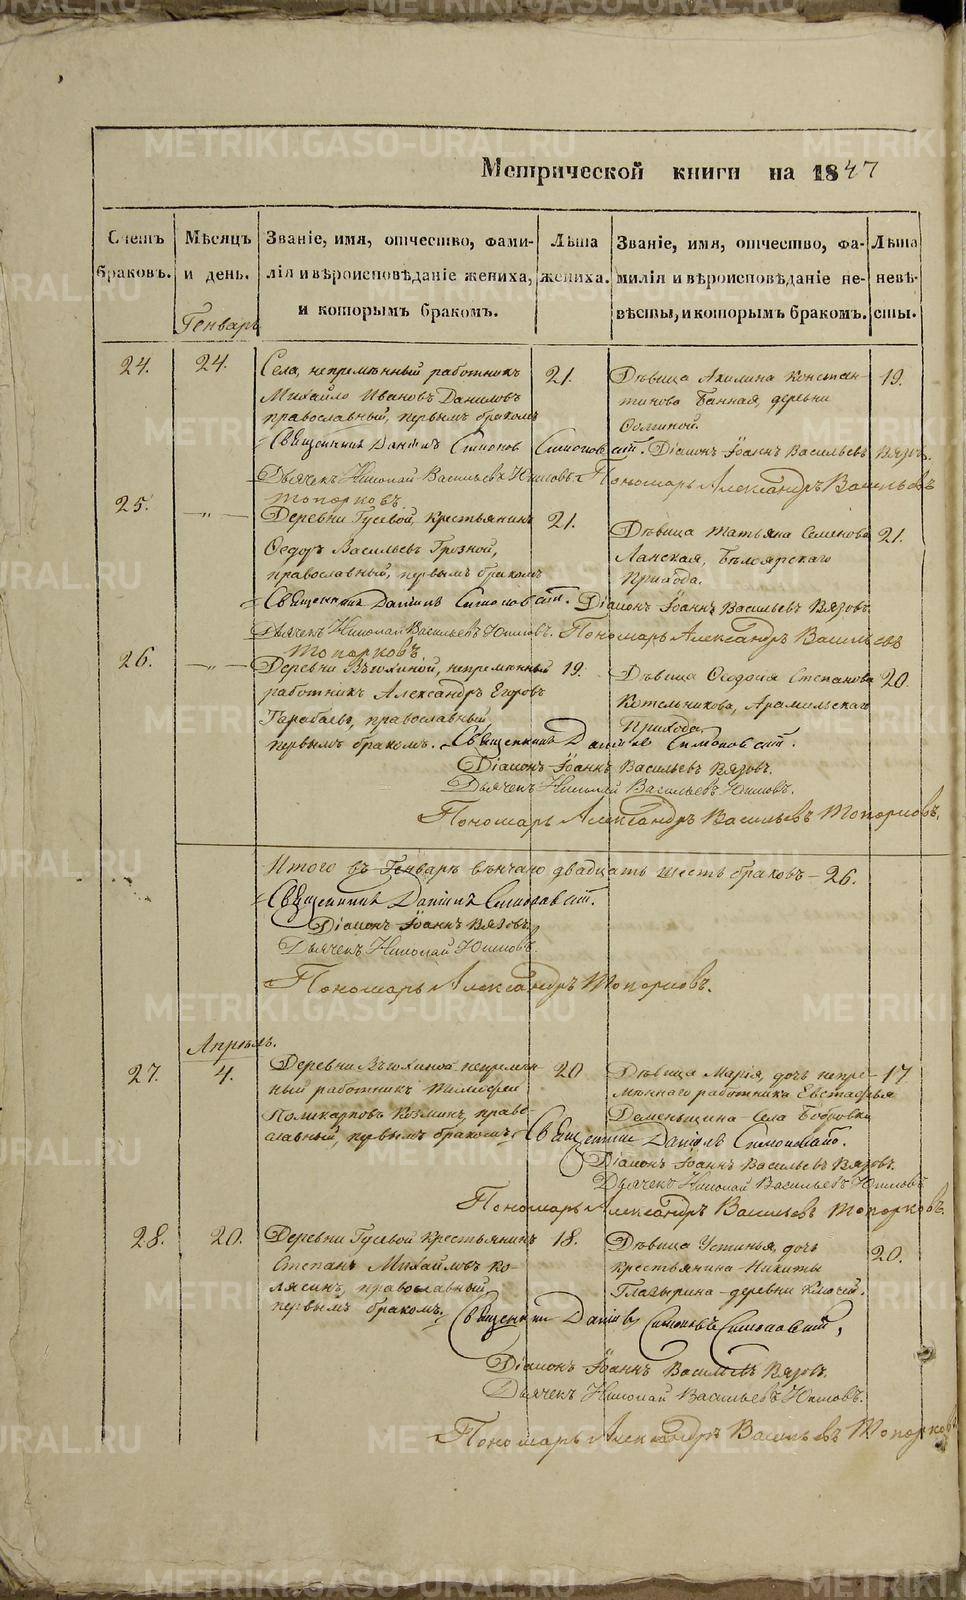 Метрической книги на 1847
Счетъ браковъ.
Мѣсяцъ и день.
Званіе, имя, отчество, фами-
лія и вѣроисповѣданіе жениха,
и которымъ бракомъ.
Лѣта жениха.
Званіе, имя, отчество, фа-
милія и вѣроисповѣданіе не-
вѣсты, и которымъ бракомъ.
Лѣта невѣ-
сты.
Генварь
24. 24.
Села, непремѣнный работникъ
Михайло Ивановъ Даниловъ
православный, первымъ бракомъ
21.
Дѣвица Акилина Констан-
тинова Банная, деревни
19.
Священникъ Даніилъ Симоновъ Діаконъ Іоаннъ Васильевъ Вязовъ.
Дьячекъ Николай Васильевъ Пономарь Александръ Васильевъ
Топорковъ.
25. -„-
Деревни Гусевой, крестьянинъ
Ѳедоръ Васильевъ Грозной,
православный, первымъ бракомъ
21.
Дѣвица Татьяна Семенова
Ланская, Бѣлоярскаго
Прихода.
21.
Священникъ Даніилъ Діаконъ Іоаннъ Васильевъ Вязовъ.
Дьячекъ Николай Васильевъ Пономарь Александръ Васильевъ
Топорковъ
26. -„-
Деревни непремѣнный
работникъ Александръ Егоровъ
православный,
первымъ бракомъ.
19.
Дѣвица Ѳеодосія Степанова
Котельникова, Арамильскаго
Прихода.
20.
Священникъ Даніилъ
Діаконъ Іоаннъ Васильевъ Вязовъ.
Дьячекъ Николай Васильевъ
Пономарь Александръ Васильевъ Топорковъ.
Итого въ Генварѣ вѣнчано двадцать шесть браковъ – 26.
Священникъ Даніилъ
Діаконъ Іоаннъ Вязовъ
Дьячекъ Николай
Пономарь Александръ Топорковъ.
Апрѣль.
27. 4.
Деревни непремѣн-
ный работникъ Тимофей
Поликарповъ Козминъ, право-
славный, первымъ бракомъ.
20
Дѣвица Марія, дочь непре-
мѣннаго работника Евстафья
Деменьшина – села Бобровки
17
Священникъ Даніилъ
Діаконъ Іоаннъ Васильевъ Вязовъ.
Дьячекъ Николай Васильевъ
Пономарь Александръ Васильевъ Топорковъ.
28. 20.
Деревни Гусевой крестьянинъ
Степанъ Михайловъ Ко-
лясинъ, православный,
первымъ бракомъ.
18.
Дѣвица Устинья, дочь
крестьянина Никиты
Глазырина – деревни
20.
Священникъ Даніилъ
Діаконъ Іоаннъ Васильевъ Вязовъ.
Дьячекъ Николай Васильевъ
Пономарь Александръ Васильевъ Топорковъ
METRIKI.GASO-URAL.RU